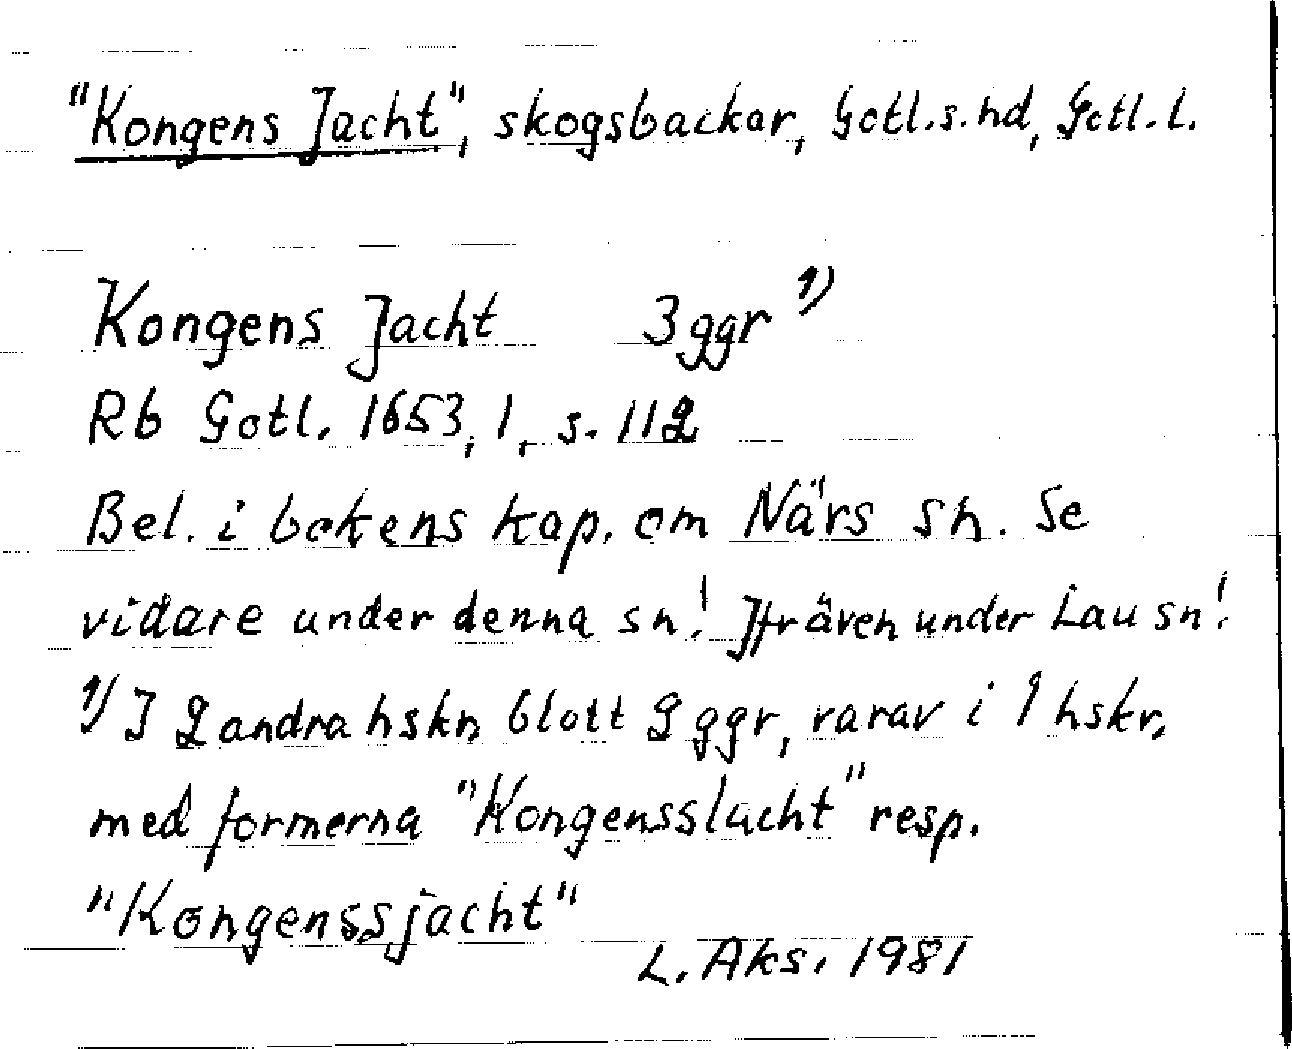 "Kongens Jacht", skogsbackar, Gotl.s.hd, Gotl.l.
Kongens Jacht 3 ggr 1)
Rb Gotl. 1653, 1, s. 112
Bel. i bokens kap. om Närs sn. Se
vidare under denna sn! Jfr även under Lau sn!
1) I 2 andra hskr. blott 2 ggr, varav i 1 hskr.
med formerna "Kongensslacht" resp.
"Kongenssjacht"
L. Aks. 1981